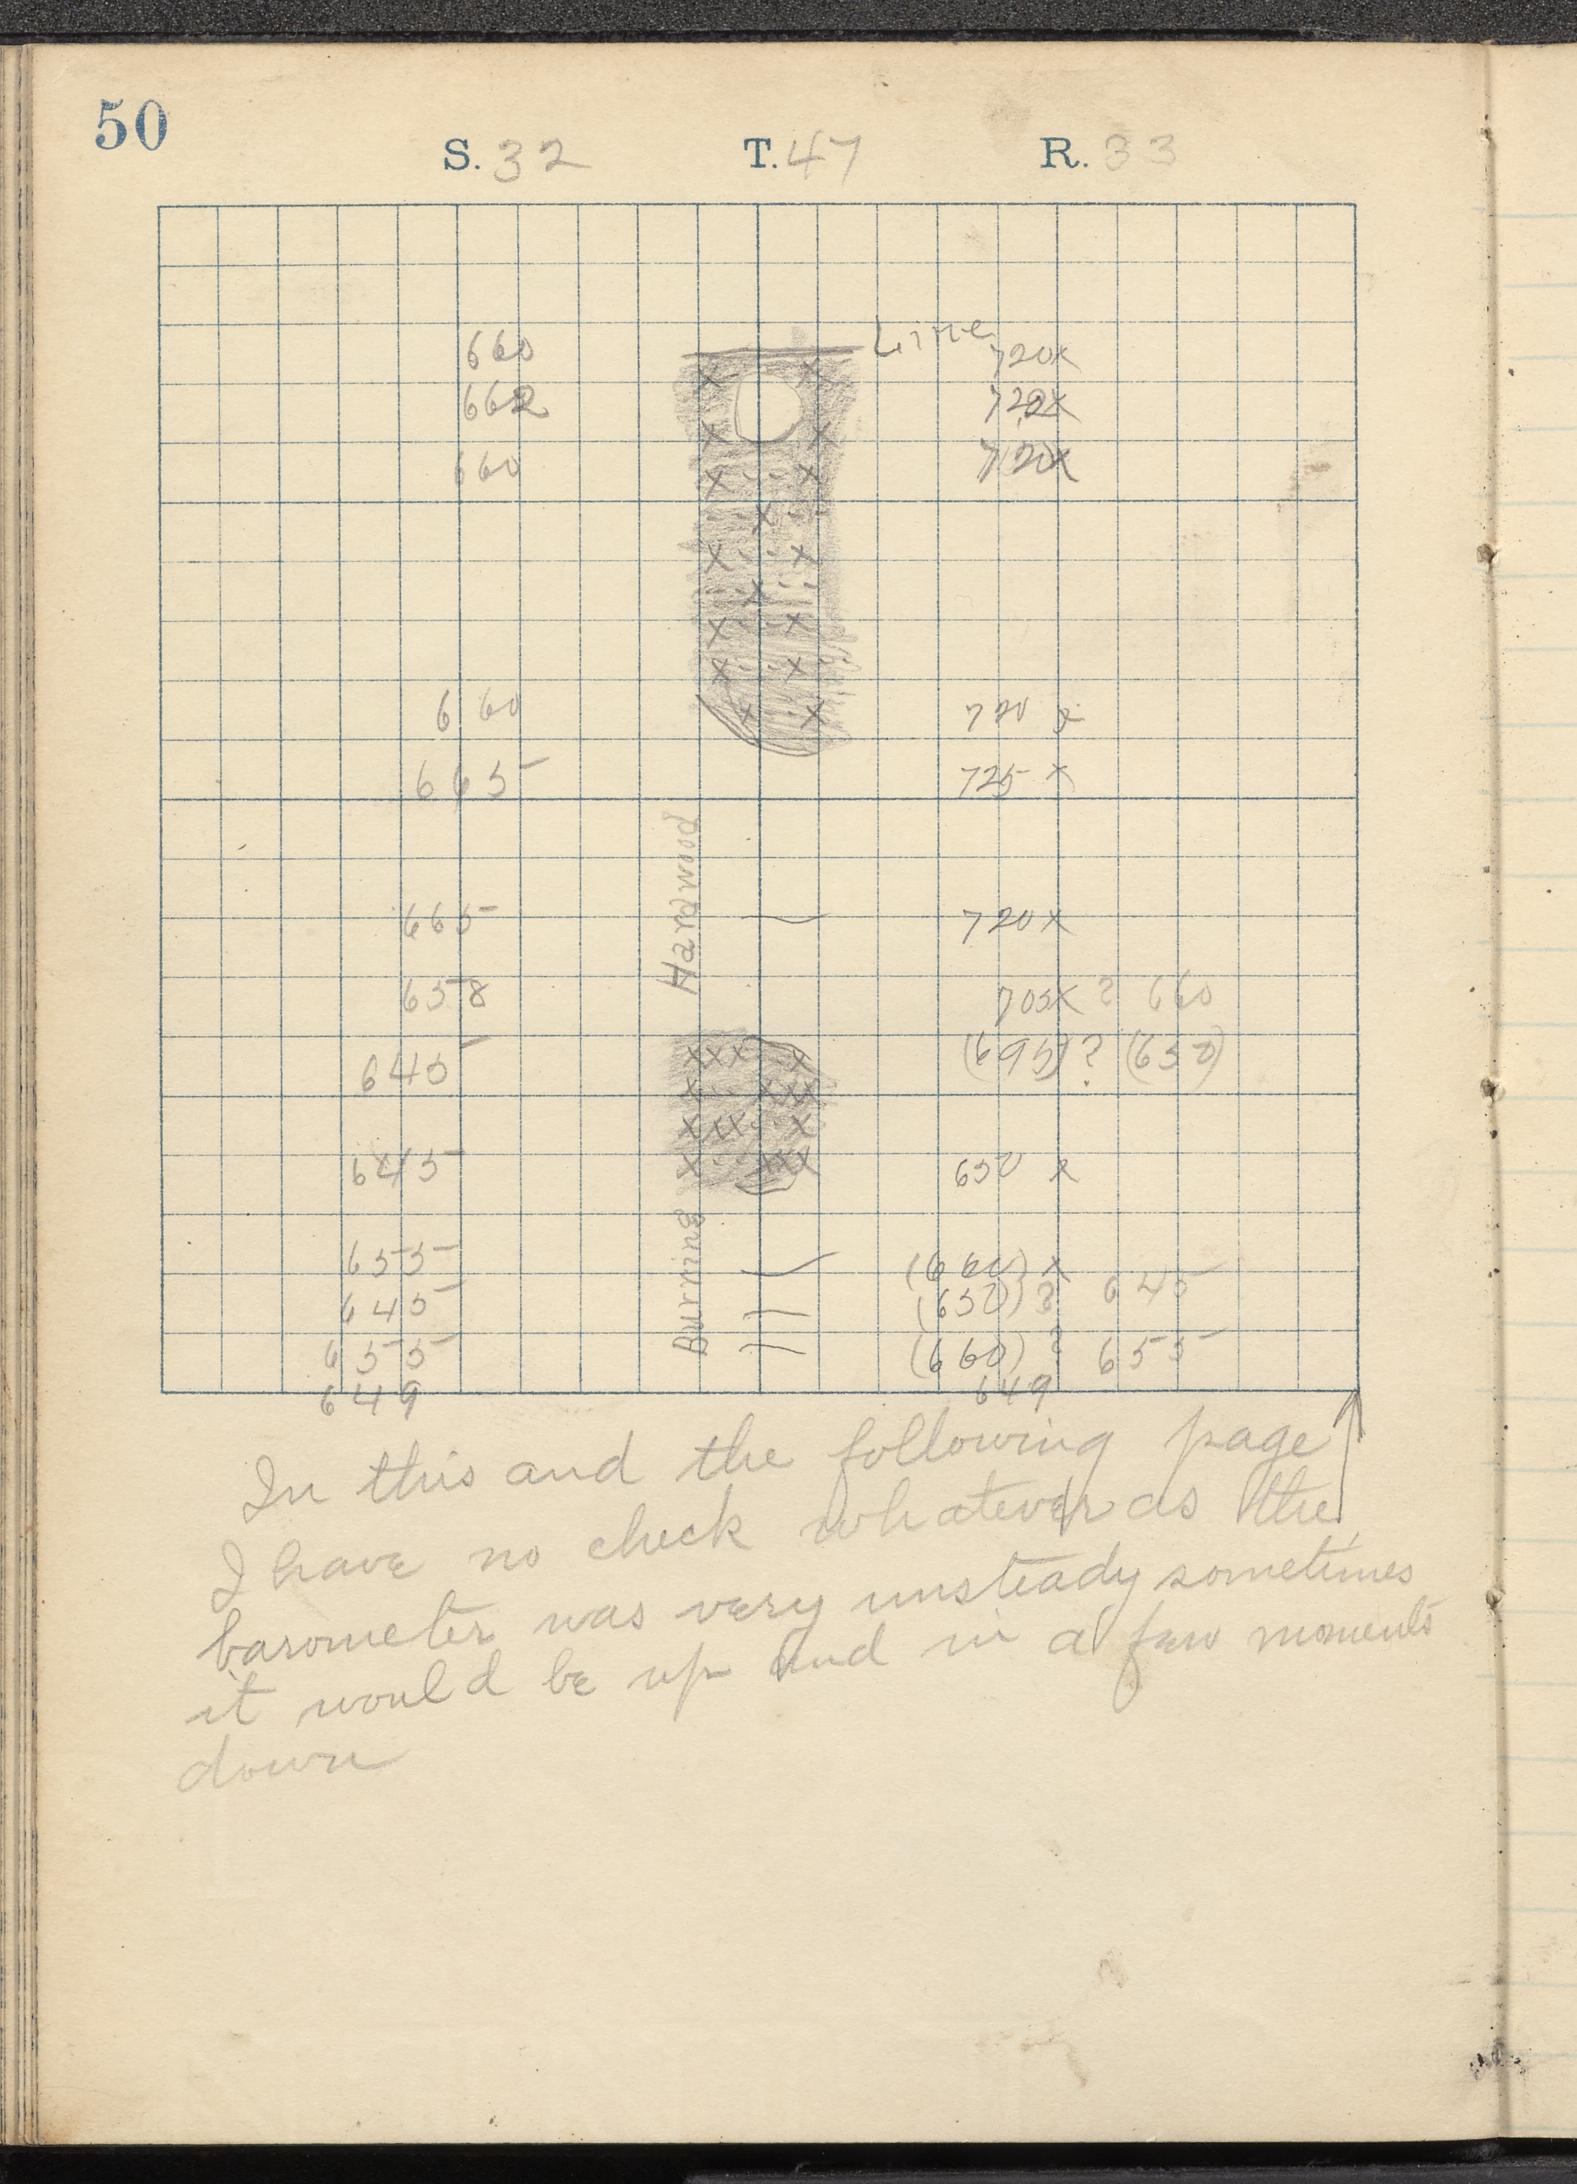 50
S. 32 T. 47 R. 33
Line
660 720x
662 722x
660 720x
660 720 x
665 725 x
Hardwood
665 720x
658 705x ? 660
645 (695)? (650)
645 650 x
Burning
655 (660) x
645 (650)? 645
655 (660)? 655
649 649
In this and the following page
I have no check whatever as the
barometer was very unsteady sometimes
it would be up and in a few moments
down